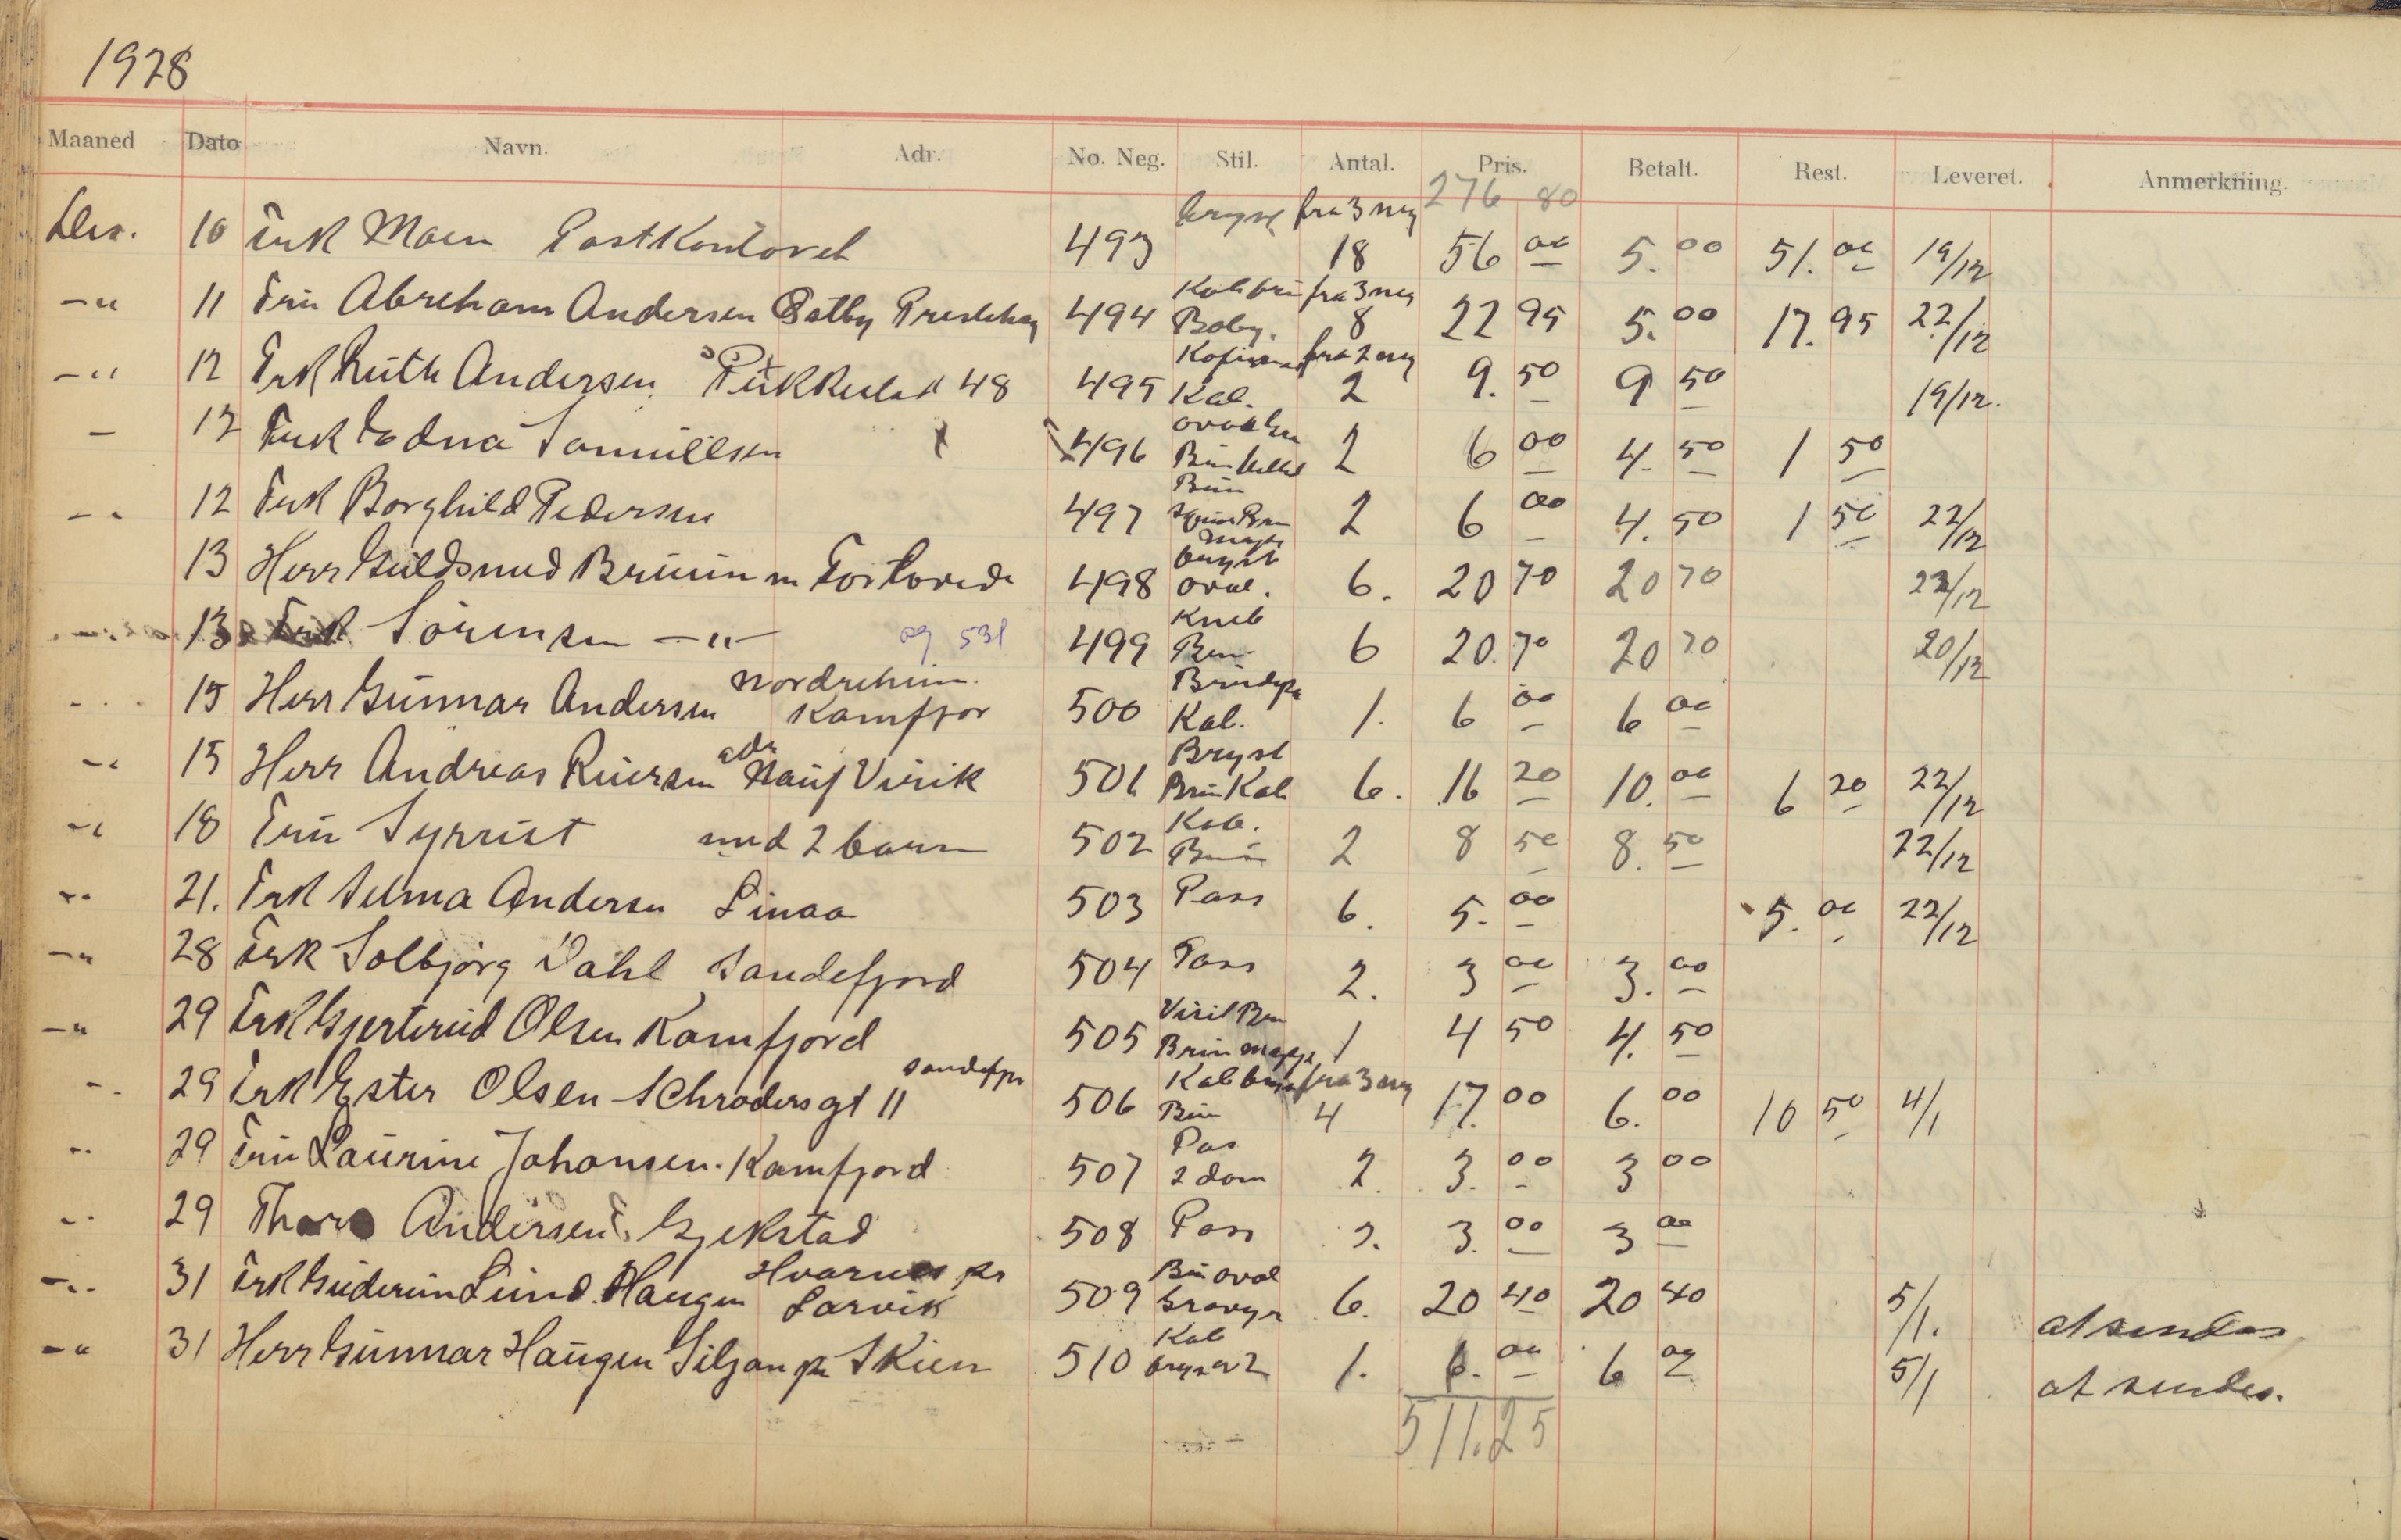 1928
Maaned Dato Navn. Adr. No. Neg. Stil. Antal. Pris. Betalt. Rest. Leveret. Anmerkning.
276 80
Des. 10 Frk Moen Postkontoret 493 bryst fra 3 neg 18 56 00 5.00 51.00 19/12
–"– 11 Fru Abreham Andersen Østby 494 Kab brun fra 3 neg 8 22 95 5.00 17.95 22/12
–"– 12 Frk Ruth Andersen 48 495 Kab. fra 2 neg 2 9.50 9 50 19/12.
– 12 Frk Edna Samuelsen 496 2 6 00 4.50 1 50
–"– 12 Frk Borghild Pedersen 497 2 6 00 4.50 1 50 22/12
13 Herr Guldsmed Bruun m Forlovede 498 bryst oval. 6. 20 70 20 70 22/12
13 Frk Sörensen –"– og 531 499 Kneb Brun 6 20.70 20 70 20/12
–"– 15 Herr Gunnar Andersen Nordreheim. Kamfjor 500 Kab. 1. 6 00 6 00
–"– 15 Herr Andreas Ruersen adr Hauf Virik 501 Bryst Brun Kab 6. 16 20 10.00 6 20 22/12
–"– 18 Fru Syrrist med 2 barn 502 Kab. Brun 2 8 50 8.50 22/12
–"– 21. Frk Selma Andersen Linaa 503 Pass 6. 5.00 5.00 22/12
–"– 28 Frk Solbjörg Dahl Sandefjord 504 Pass 2. 3 00 3.00
–"– 29 Frk Gjertrud Olsen Kamfjord 505 Visit Brun 1 4 50 4.50
–"– 29 Frk Ester Olsen Schrodersgt 11 Sandefjr 506 Kab bryst fra 3 neg Brun 4 17.00 6.00 10 50 4/1
–"– 29 Fru Laurine Johansen. Kamfjord 507 Pas 2 dom 2. 3.00 3 00
–"– 29 Thora Andersen Gjekstad 508 Pass 2. 3.00 3 00
–"– 31 Frk Guderun Lund. Haugen Hvarnes pr Larvik 509 Brun oval 6. 20 40 20 40 5/1. at sendes
–"– 31 Herr Gunnar Haugen Siljan pr Skien 510 Kab 1. 6.00 6 00 5/1 at sendes.
511.25